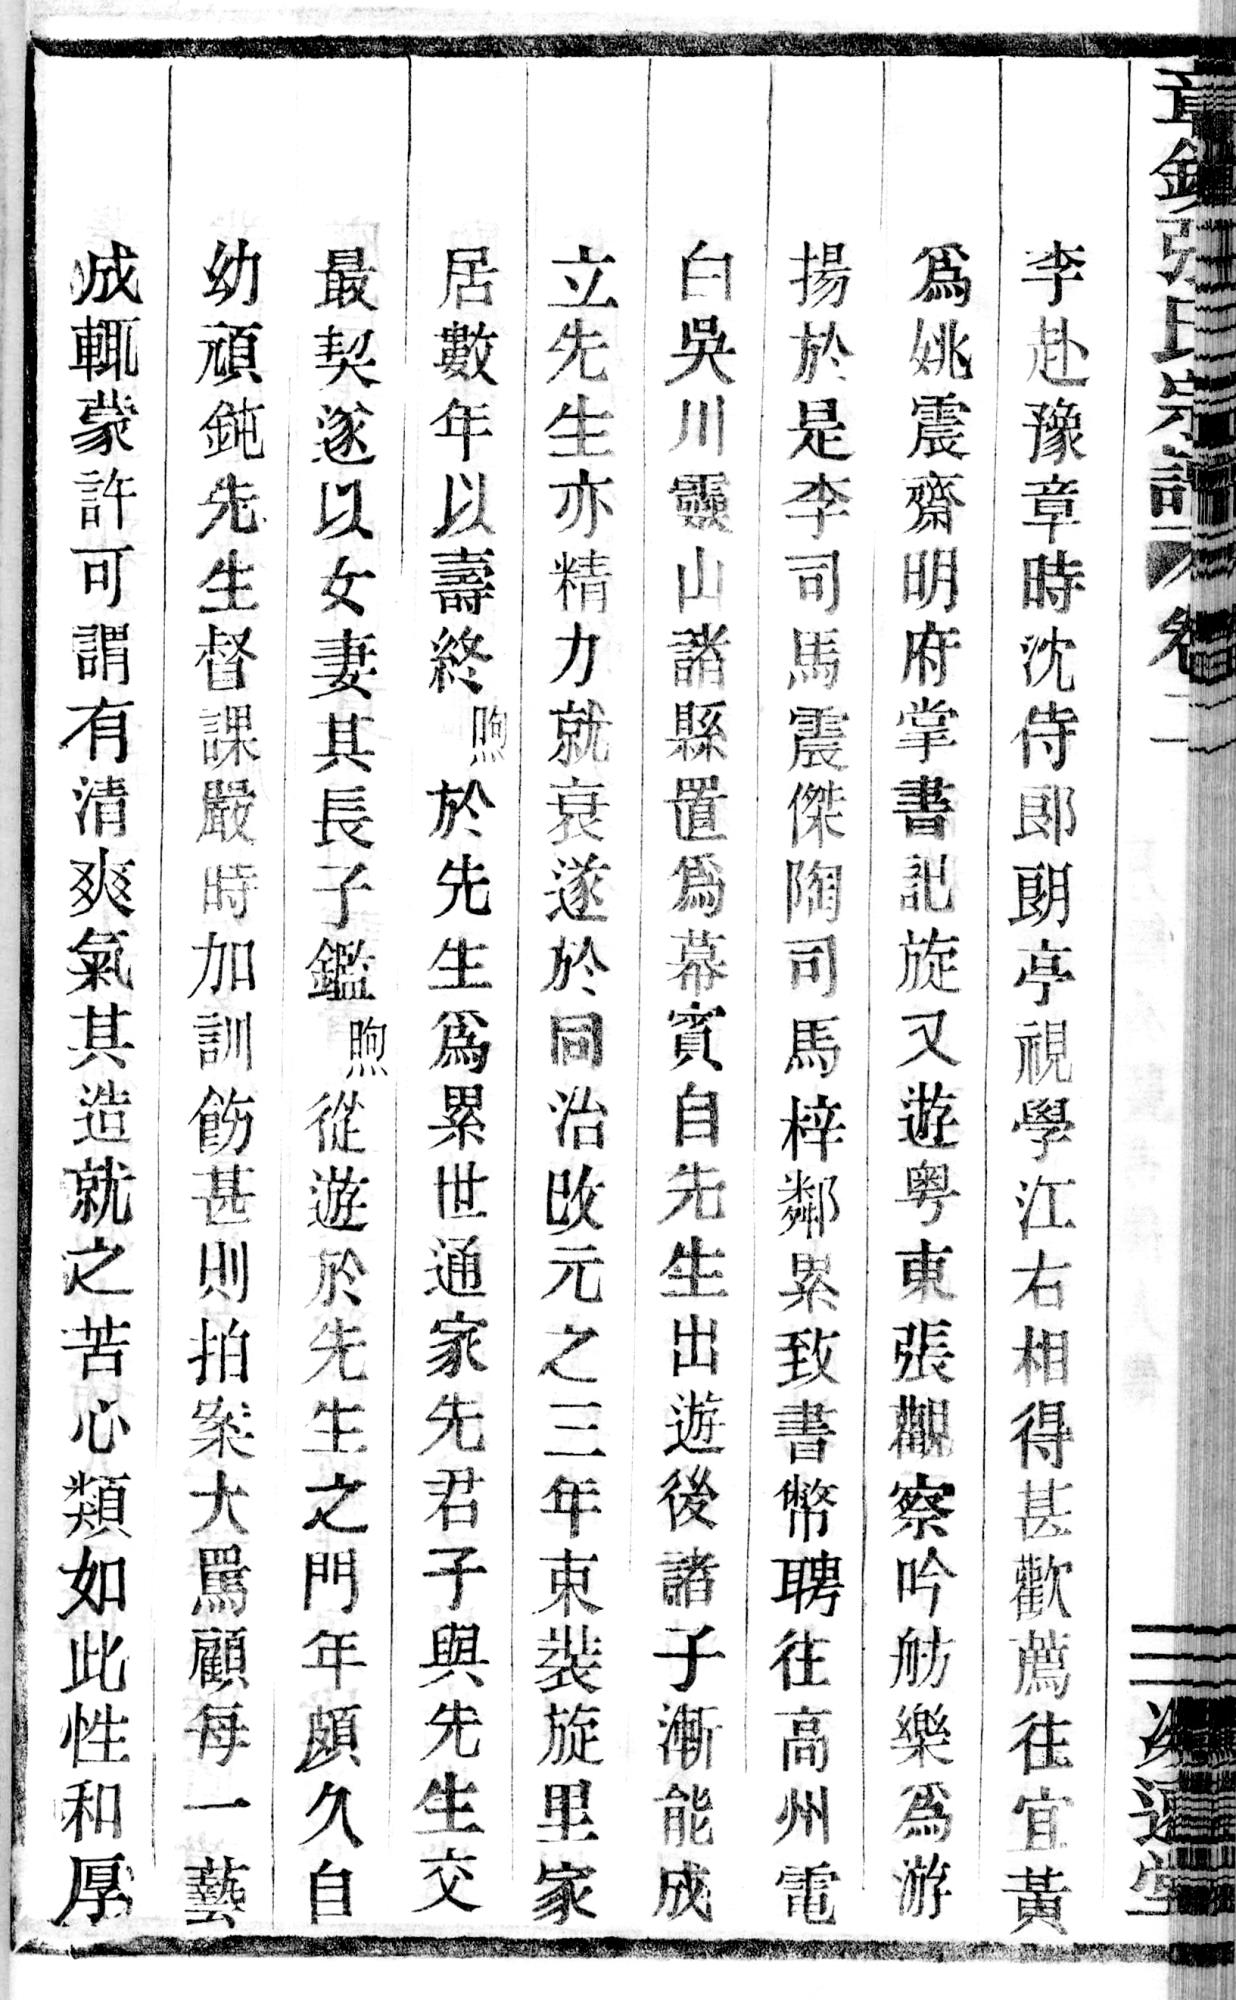 章鎮張氏宗譜 卷二
李赴豫章時沈侍郎朗亭視學江右相得甚歡薦往宜黃
爲姚震齋明府掌書記旋又遊粤東張觀察吟舫樂爲游
揚於是李司馬震傑陶司馬梓鄰累致書幣聘往高州電
白吳川靈山諸縣置爲幕賓自先生出遊後諸子漸能成
立先生亦精力就衰遂於同治改元之三年束裝旋里家
居數年以壽終煦於先生爲累世通家先君子與先生交
最契遂以女妻其長子鑑煦從遊於先生之門年頗久自
幼頑鈍先生督課嚴時加訓飭甚則拍案大罵顧每一藝
成輒蒙許可謂有清爽氣其造就之苦心類如此性和厚